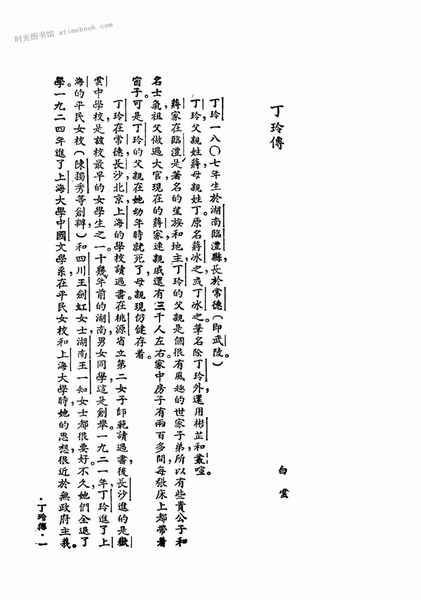 时光图书馆 atimebook.com
丁玲傳
白霓
丁玲一八〇七年生於湖南臨澧縣,長於常德(卽武陵。)
丁玲父親姓蔣母親姓丁。原名蔣冰之或丁冰之。筆名除丁玲外還用彬芷和叢喧。
蔣家在臨澧是著名的望族和地主,丁玲的父親是個很有風趣的世家子弟,所以有些貴公子和
名士氣。祖父做過大官。現在的蔣家連親戚還有三千人左右。家中房子有兩百多間,每張床上都帶着
窗子。可是丁玲的父親在她幼年時就死了,母親現仍健存着。
丁玲在常德長沙北京上海的學校讀過書。在桃源省立第二女子師範讀過書後長沙進的是嶽
雲中學校,是該校最早的女學生之一。十幾年前的湖南男女同學這是創舉。一九二一年丁玲進了上
海的平民女校(陳獨秀等創辦)和四川王劍虹女士湖南王一知女士都很要好。不久她們全退了
學。一九二四年進了上海大學中國文學系。在平民女校和上海大學時,她的思想很近於無政府主義。
·丁玲傳·一